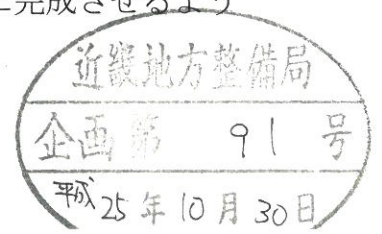 に完成させるよう
近畿地方整備局
企画第 91 号
平成 25 年 10 月 30 日